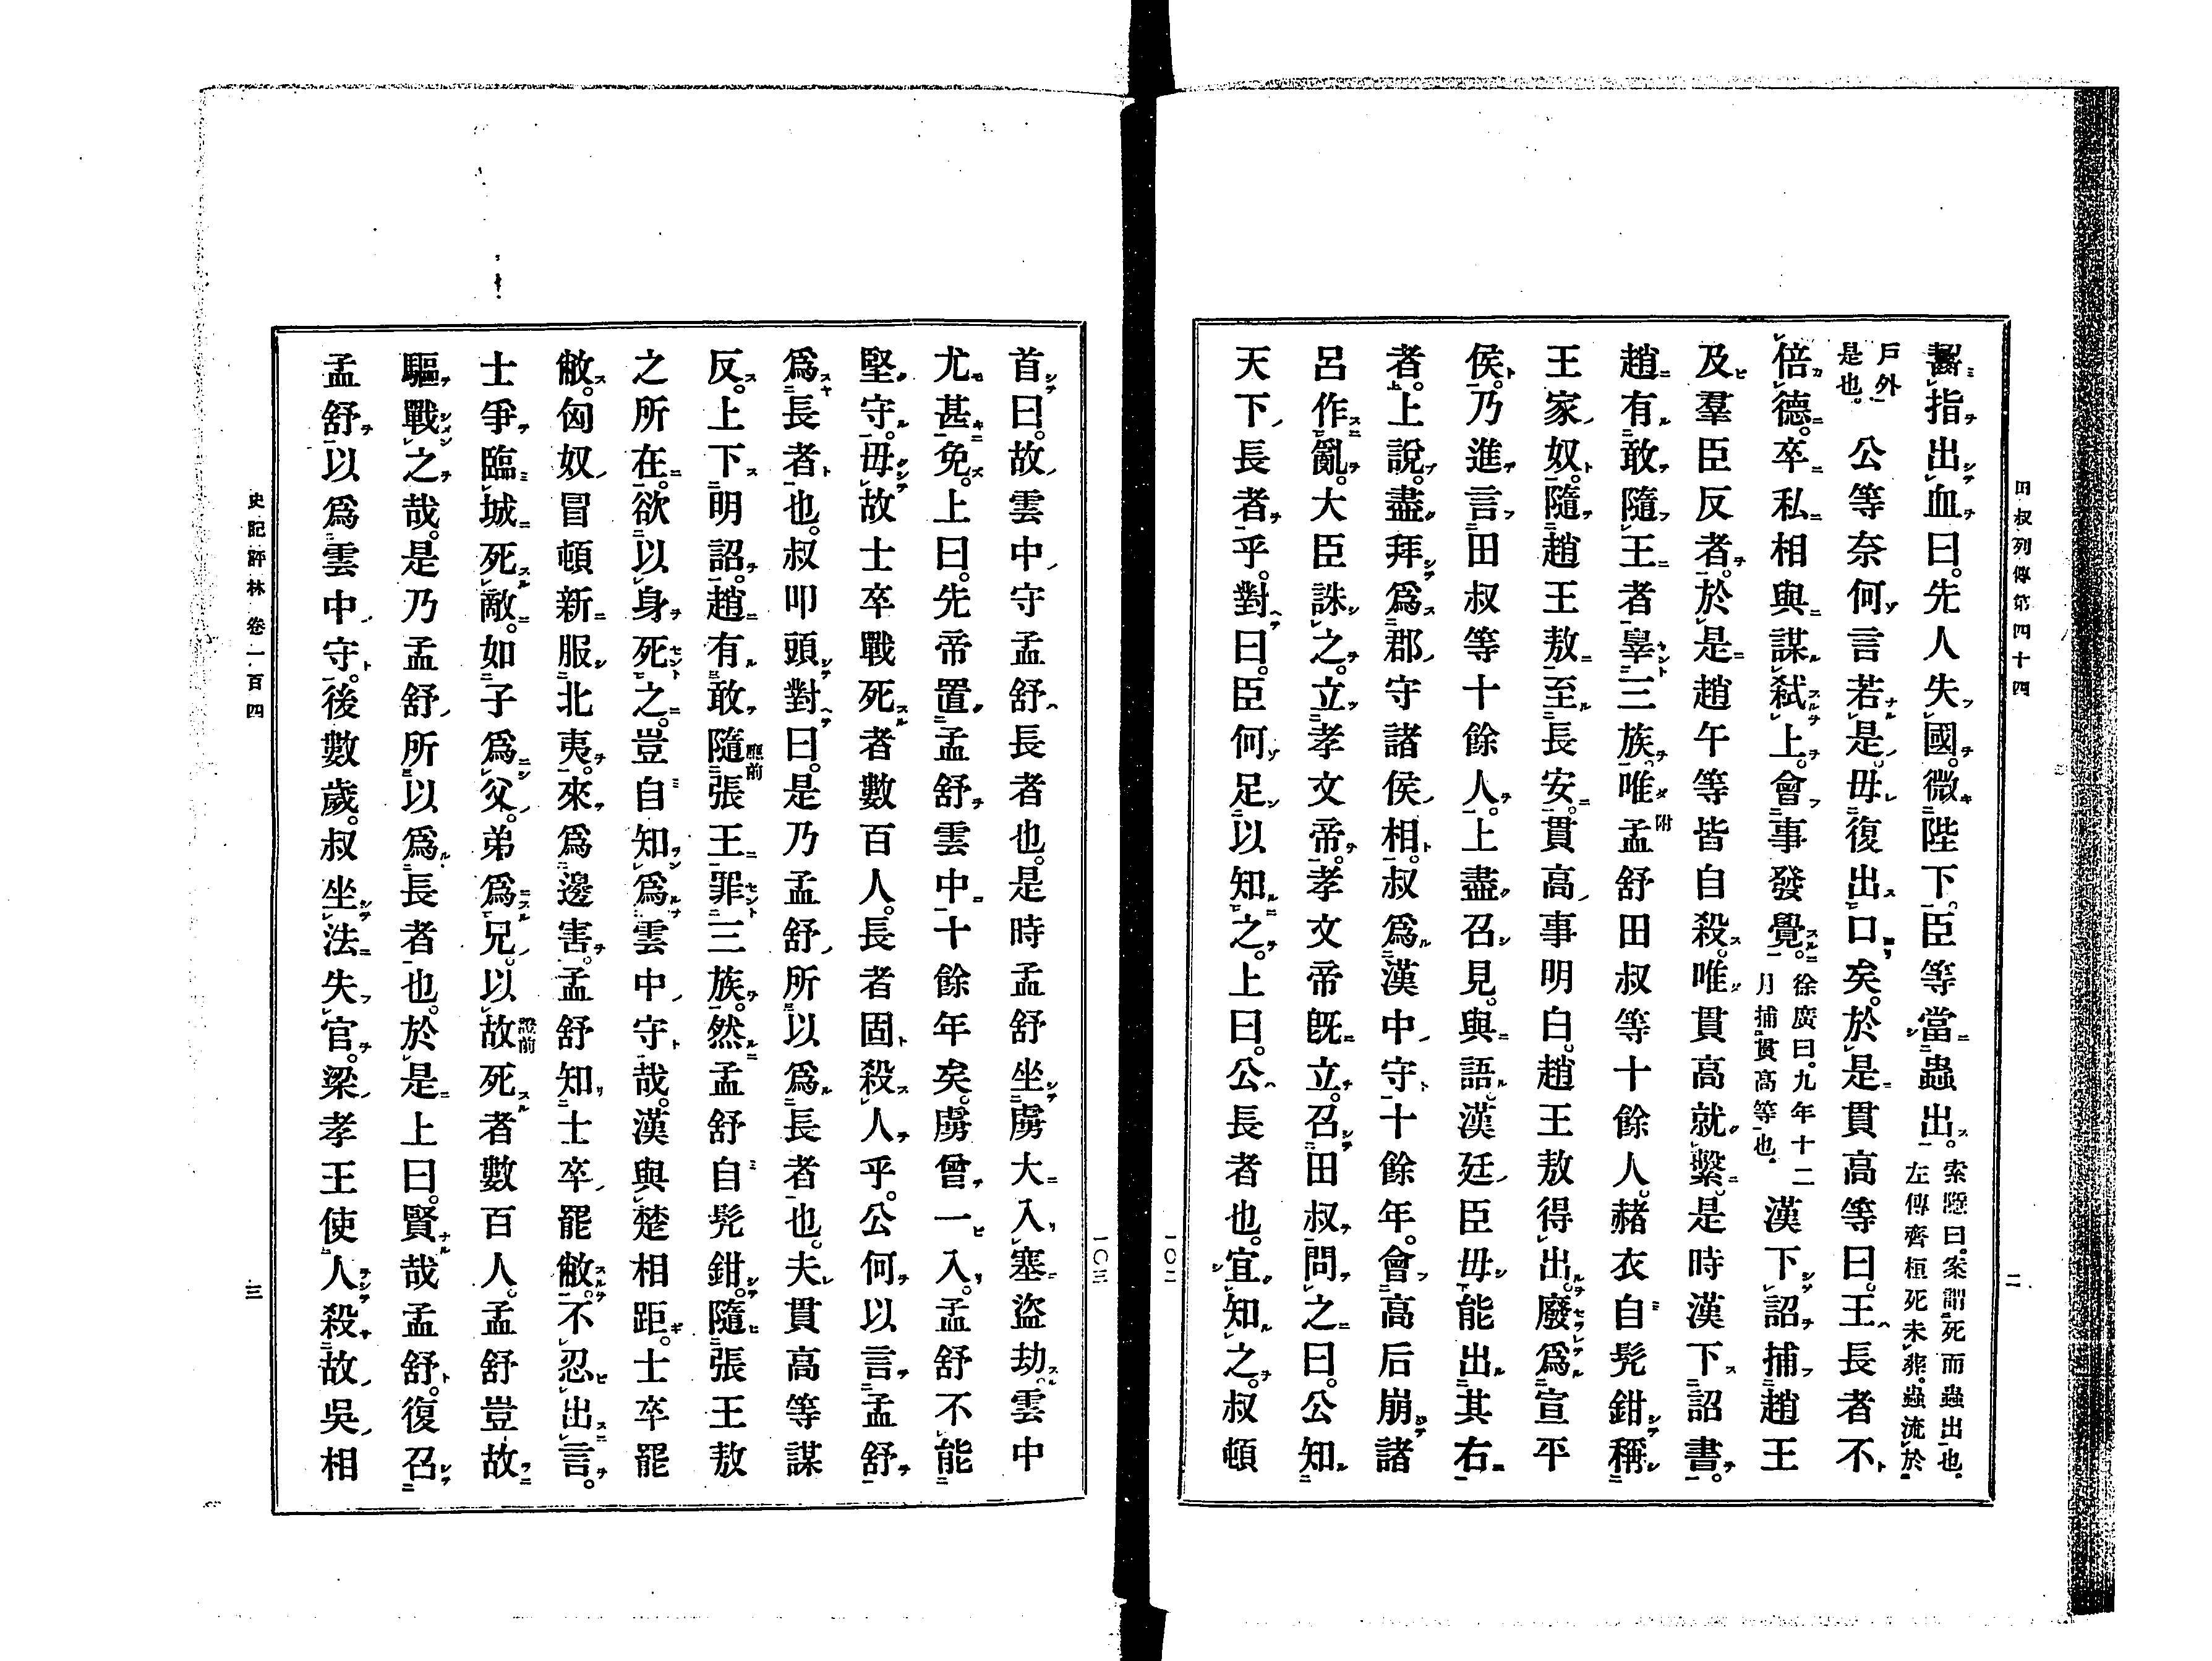 田叔列傳第四十四
二
一〇二
齧指出血曰。先人失國。微陛下。臣等當蟲出。索隱曰。案謂死而蟲出也。左傳齊桓死未葬。蟲流於
戶外是也。公等奈何言若是。毋復出口矣。於是貫高等曰。王長者不
倍德。卒私相與謀弑上。會事發覺。徐廣曰。九年十二月捕貫高等也。漢下詔捕趙王
及羣臣反者。於是趙午等皆自殺。唯貫高就繫。是時漢下詔書。
趙有敢隨王者辠三族。唯孟舒田叔等十餘人。赭衣自髡鉗稱
王家奴。隨趙王敖至長安。貫高事明白。趙王敖得出。廢爲宣平
侯。乃進言田叔等十餘人。上盡召見。與語。漢廷臣毋能出其右
者。上說。盡拜爲郡守諸侯相。叔爲漢中守十餘年。會高后崩諸
呂作亂。大臣誅之。立孝文帝。孝文帝既立。召田叔問之曰。公知
天下長者乎。對曰。臣何足以知之。上曰。公長者也。宜知之。叔頓
一〇三
首曰。故雲中守孟舒長者也。是時孟舒坐虜大入塞盜劫。雲中
尤甚免。上曰。先帝置孟舒雲中十餘年矣。虜曾一入。孟舒不能
堅守。毋故士卒戰死者數百人。長者固殺人乎。公何以言孟舒
爲長者也。叔叩頭對曰。是乃孟舒所以爲長者也。夫貫高等謀
反。上下明詔。趙有敢隨張王罪三族。然孟舒自髡鉗。隨張王敖
之所在。欲以身死之。豈自知爲雲中守哉。漢與楚相距。士卒罷
敝。匈奴冒頓新服北夷。來爲邊害。孟舒知士卒罷敝。不忍出言。
士爭臨城死敵。如子爲父。弟爲兄。以故死者數百人。孟舒豈故
驅戰之哉。是乃孟舒所以爲長者也。於是上曰。賢哉孟舒。復召
孟舒以爲雲中守。後數歲。叔坐法失官。梁孝王使人殺故吳相
史記評林 卷一百四
三